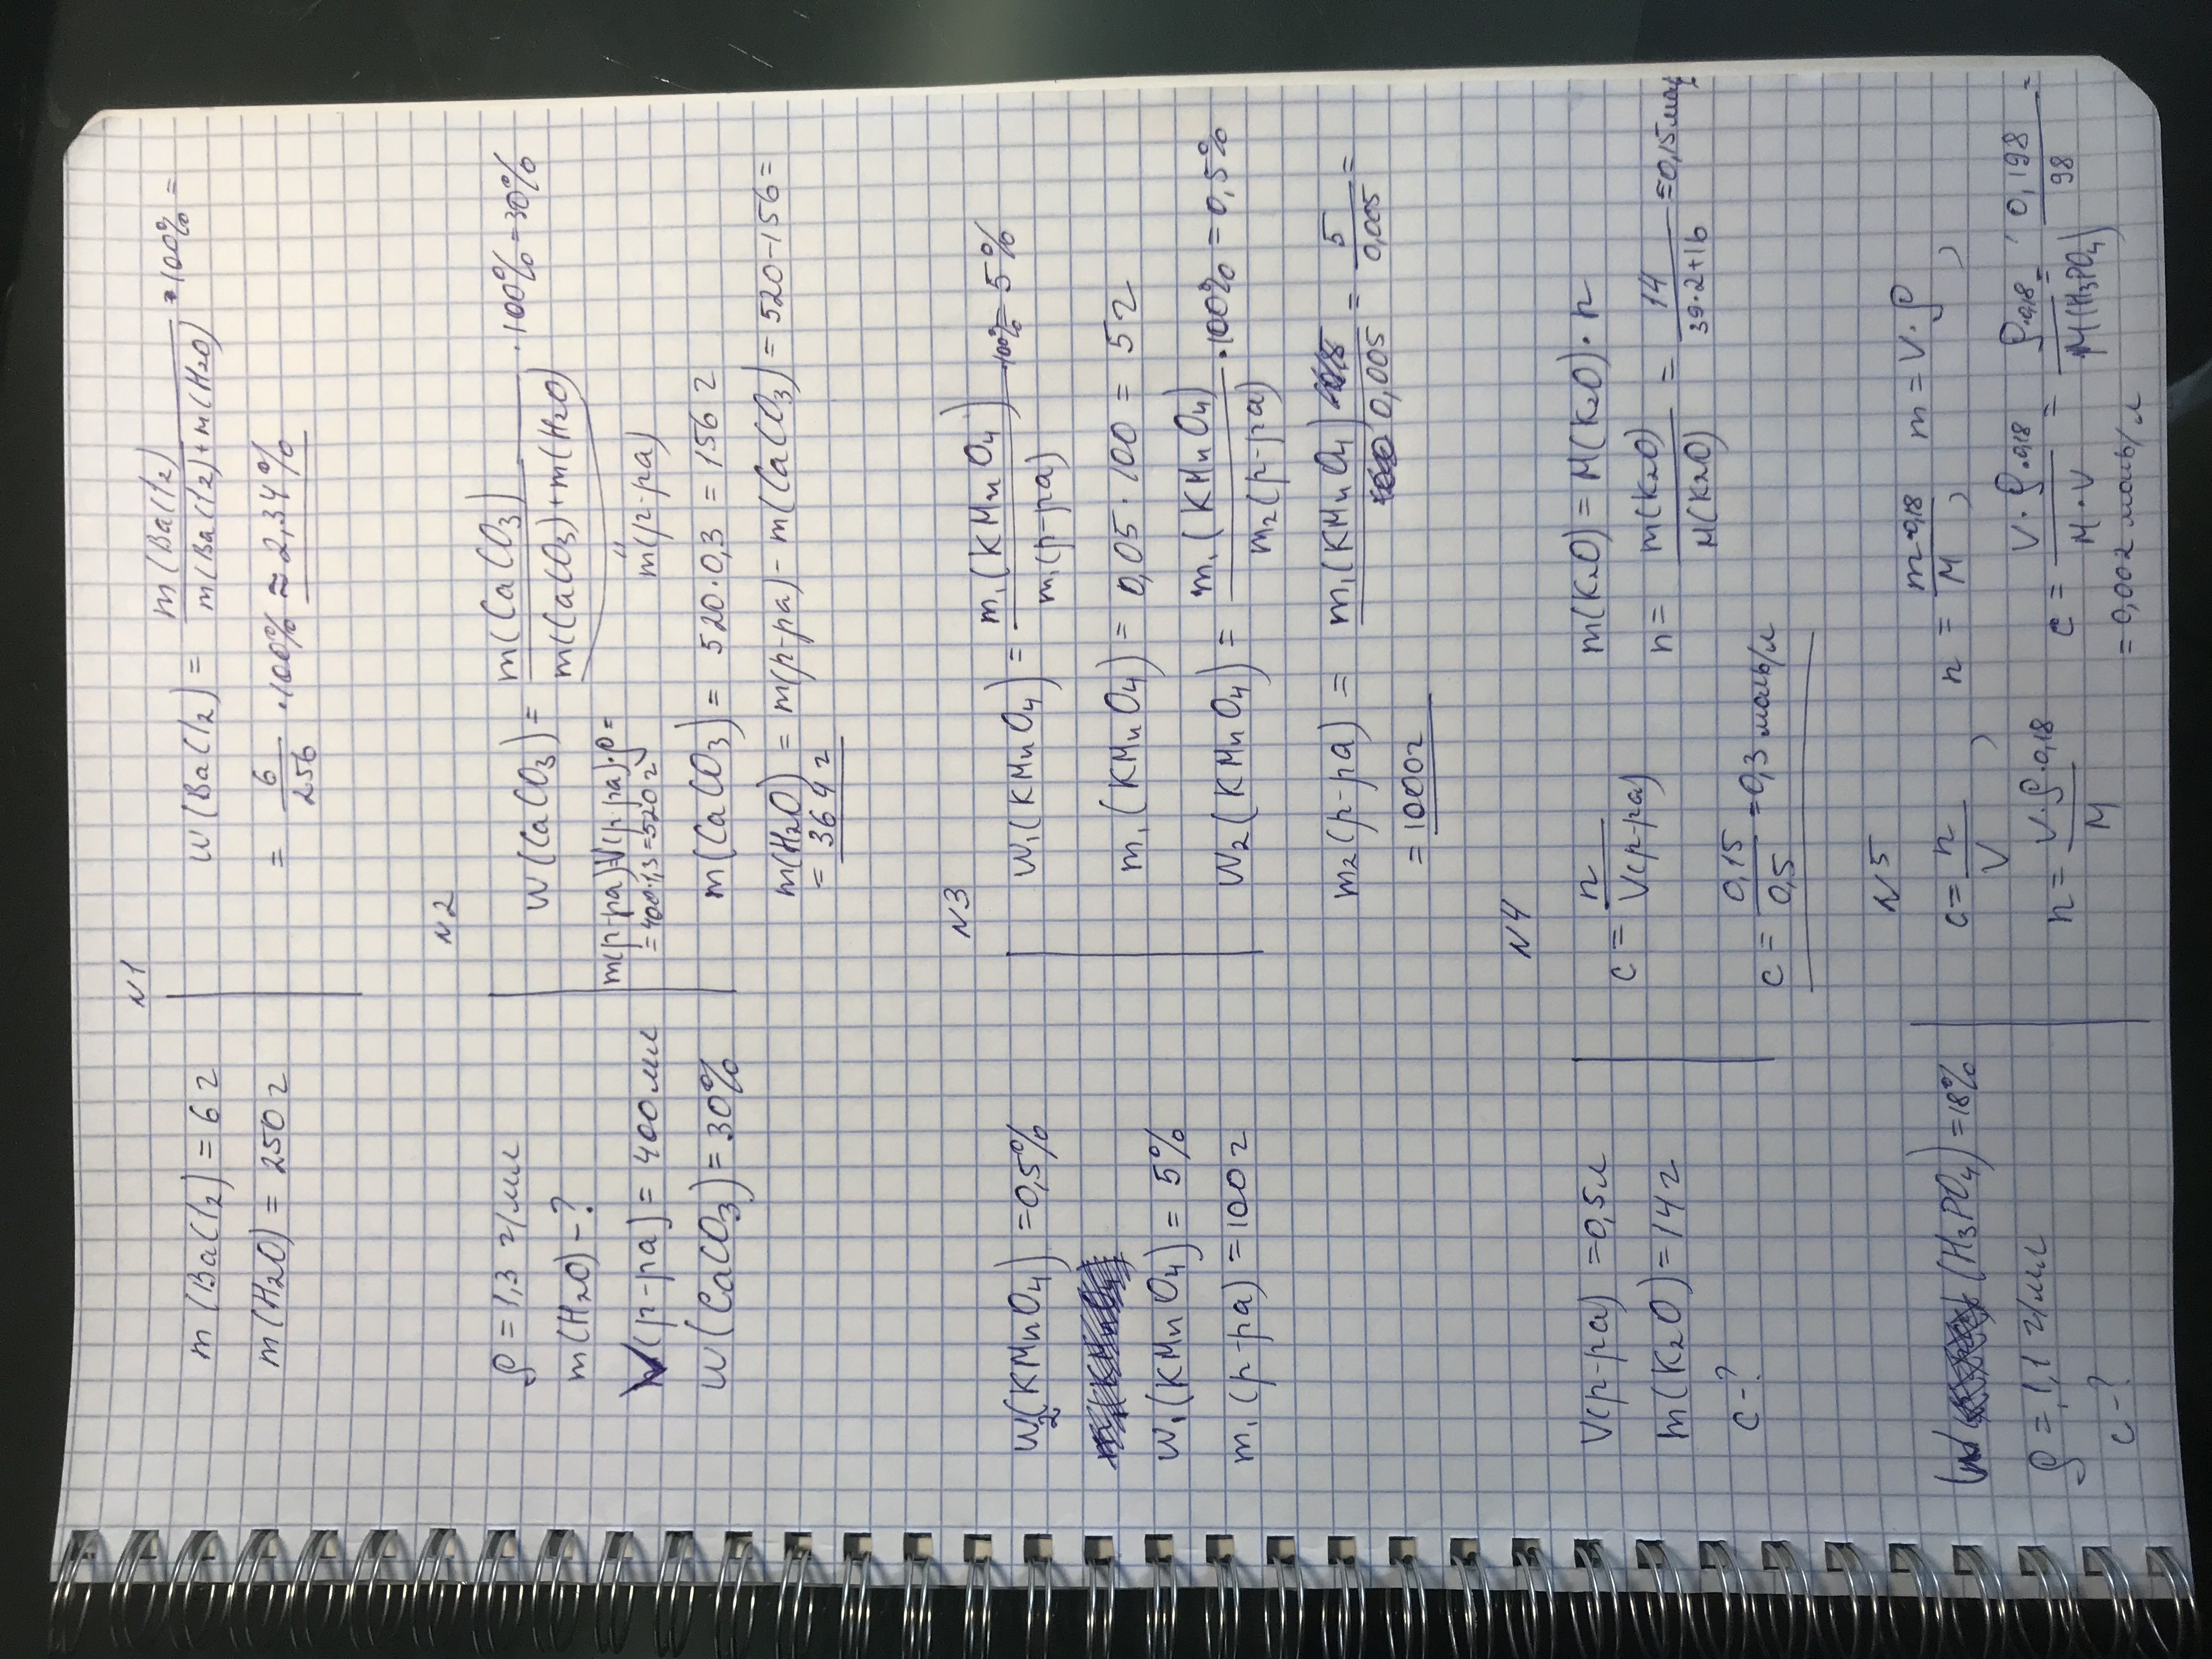 N1
m(BaCl₂) = 6 г
m(H₂O) = 250 г
W(BaCl₂) = m(BaCl₂) / (m(BaCl₂) + m(H₂O)) · 100% =
= 6/256 · 100% ≈ 2,34%
N2
ρ = 1,3 г/мл
m(H₂O) - ?
V(р-ра) = 400 мл
W(CaCO₃) = 30%
W(CaCO₃) = m(CaCO₃) / (m(CaCO₃) + m(H₂O)) · 100% = 30%
" m(р-ра)
m(р-ра) = V(р-ра) · ρ =
= 400 · 1,3 = 520 г
m(CaCO₃) = 520 · 0,3 = 156 г
m(H₂O) = m(р-ра) - m(CaCO₃) = 520 - 156 =
= 364 г
N3
W₂(KMnO₄) = 0,5%
W₁(KMnO₄) = 5%
m₁(р-ра) = 100 г
W₁(KMnO₄) = m₁(KMnO₄) / m₁(р-ра) · 100% = 5%
m₁(KMnO₄) = 0,05 · 100 = 5 г
W₂(KMnO₄) = m₁(KMnO₄) / m₂(р-ра) · 100% = 0,5%
m₂(р-ра) = m₁(KMnO₄) / 0,005 = 5 / 0,005 =
= 1000 г
N4
V(р-ра) = 0,5 л
m(K₂O) = 14 г
c - ?
c = n / V(р-ра)
m(K₂O) = M(K₂O) · n
n = m(K₂O) / M(K₂O) = 14 / (39·2+16) = 0,15 моль
c = 0,15 / 0,5 = 0,3 моль/л
N5
(H₃PO₄) = 18%
ρ = 1,1 г/мл
c - ?
c = n / V , n = m·0,18 / M , m = V · ρ ,
n = V·ρ·0,18 / M
c = V·ρ·0,18 / M·V = ρ·0,18 / M(H₃PO₄) = 0,198 / 98 =
= 0,002 моль/л